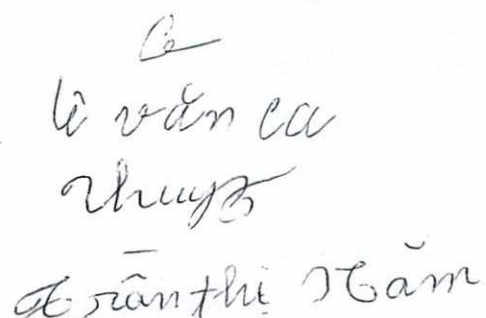 Ca
lê văn ca
Thuý
Trần thị Năm